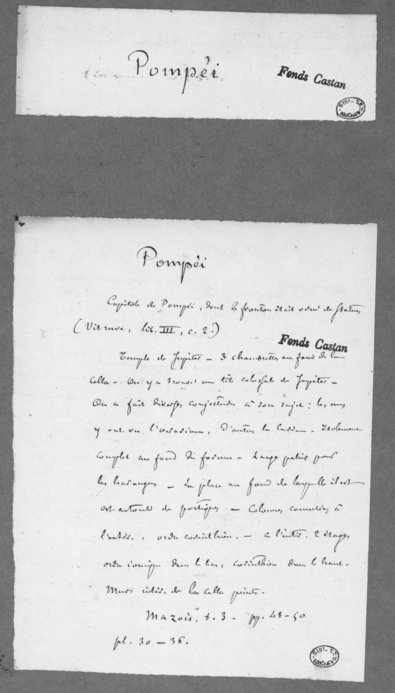 Pompéi
Fonds Castan
Pompéi
Capitole de Pompéi, dont le fronton était orné de statues
(Vitruve, lib. III, c. 2.)
Fonds Castan
Temple de Jupiter – 3 chambrettes au fond de la
cella – On y a trouvé une tête colossale de Jupiter –
On a fait diverses conjectures à son sujet : les uns
y ont vu l'aerarium, d'autres la – Isolement
complet au fond du forum – Large palier pour
les harangues – La place au fond de laquelle il est
est entourée de portiques – Colonnes cannelées à
l'extér., ordre corinthien. – à l'intér. 2 étages
ordre ionique dans le bas, corinthien dans le haut –
Murs intér. de la cella peints.
Mazois, t. 3. pp. 48-50
pl. 30 – 36.